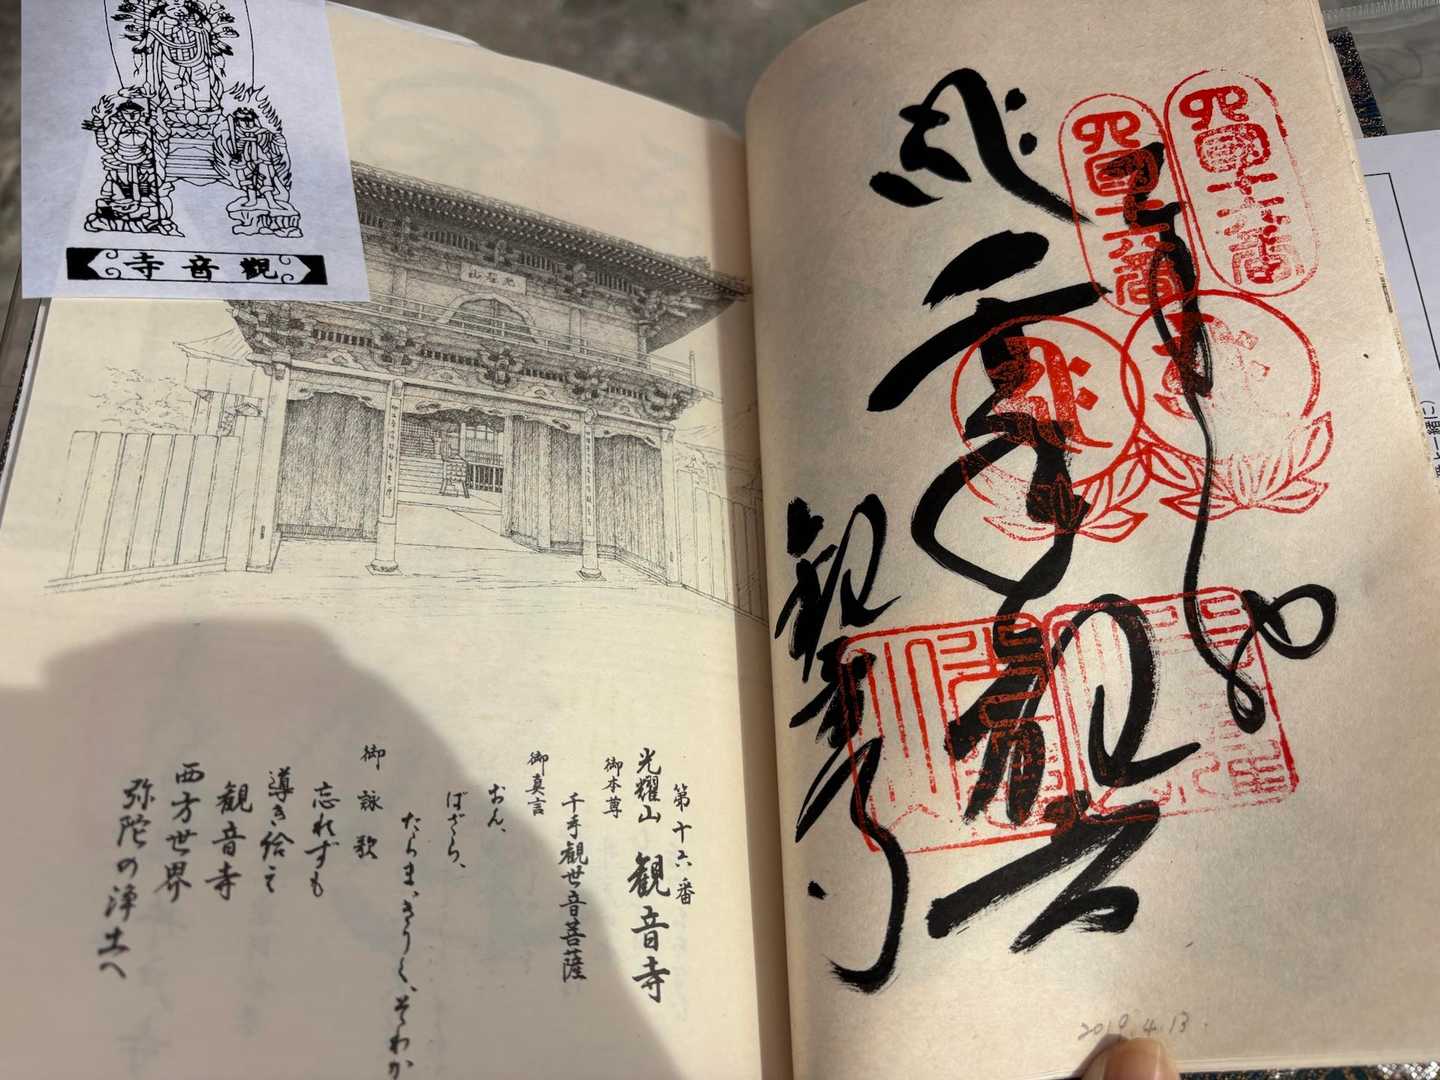 寺音觀
第十六番
光耀山 観音寺
御本尊
千手観世音菩薩
御真言
おん、
ばざら、
たらま、きりく、そわか
御詠歌
忘れずも
導き給え
観音寺
西方世界
弥陀の浄土へ
四国十六番
四国十六番
観音寺
2019.4.13.
一緒に)